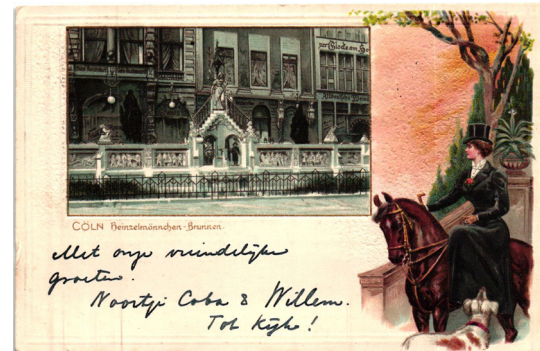 zur Glocke am Ho
CÖLN Heinzelmännchen-Brunnen.
Met onze vriendelijke
groeten.
Noortje Coba & Willem.
Tot Kijk!